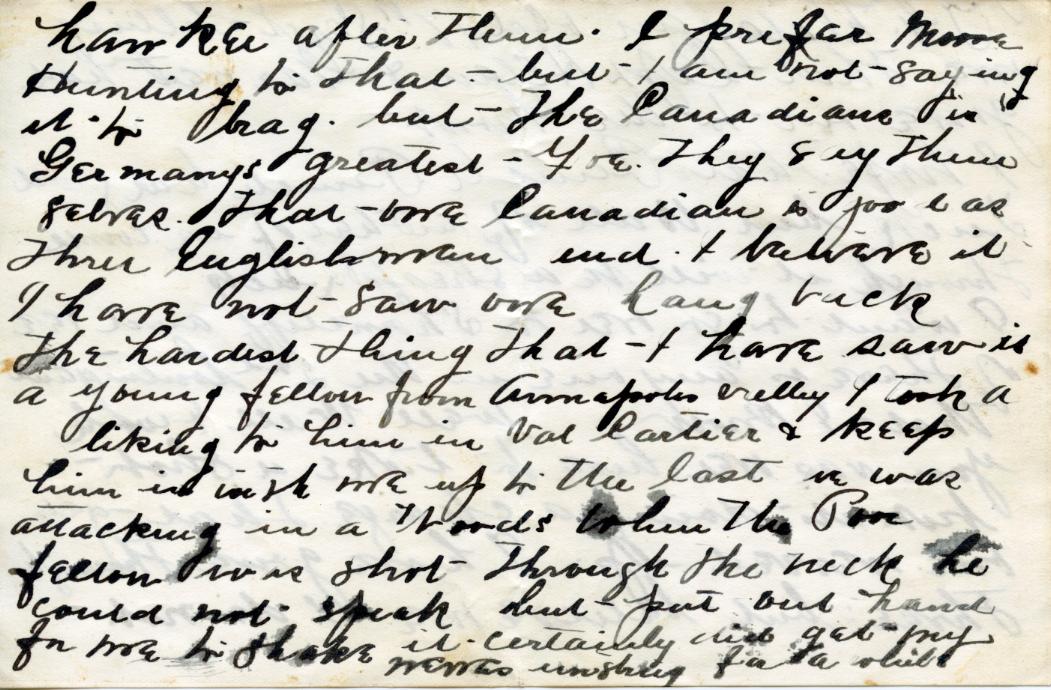 hanker after them. I prefar Moose
Hunting to that - but I am not saying
it to brag. but the Canadians is
Germanys greatest - Foe. They say them
selves. that one Canadian is good as
three Englishman and I beleave it
I have not saw one hang back
The hardest thing that I have saw is
a young fellow from Annapolis valley I took a
liking to him in Val Cartier & keep
him in with me up to the last we was
attacking in a Woods when the Poor
fellow was shot through the neck he
could not speak but put out hand
for me to shake it certainly did get my
nerves unstrug for a while